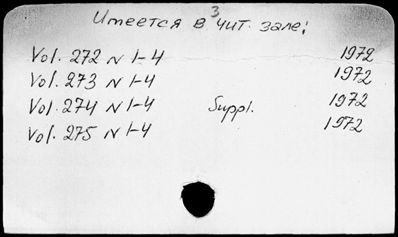 Имеется в 3 чит. зале:
Vol. 272 N 1-4 1972
Vol. 273 N 1-4 1972
Vol. 274 N 1-4 Suppl. 1972
Vol. 275 N 1-4 1972